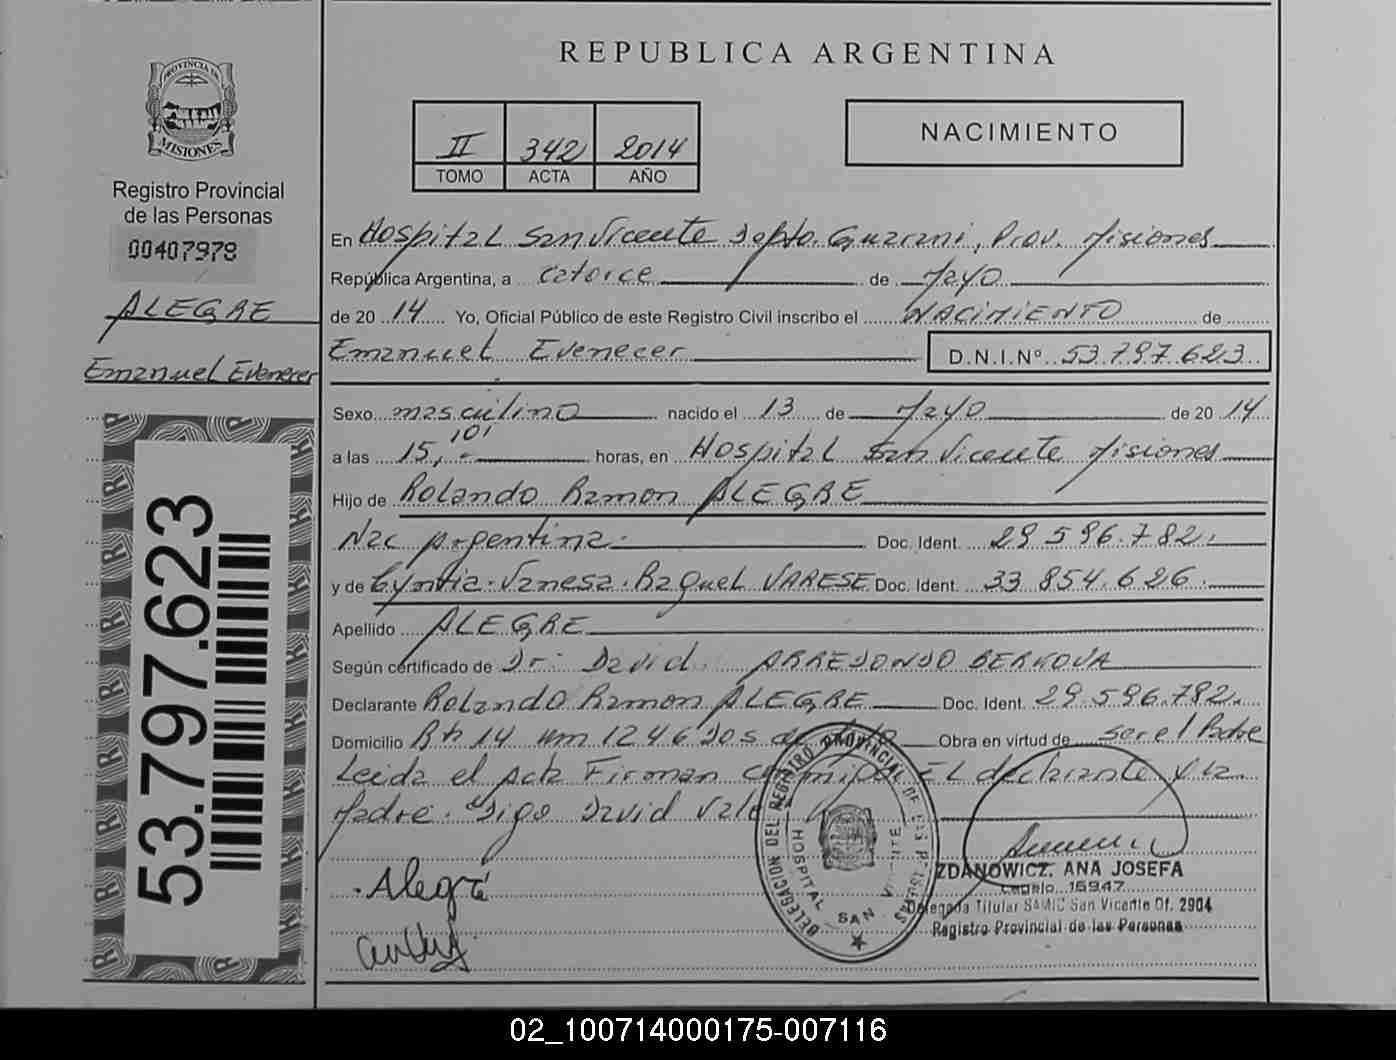 PROVINCIA DE
MISIONES
Registro Provincial
de las Personas
00407978
ALEGRE
Emanuel Evenecer
53.797.623
REPUBLICA ARGENTINA
II 342 2014
TOMO ACTA AÑO
NACIMIENTO
En Hospital San Vicente Depto. Guarani, Prov. Misiones
República Argentina, a catorce de Mayo
de 20 14 Yo, Oficial Público de este Registro Civil inscribo el NACIMIENTO de
Emanuel Evenecer D.N.I.Nº 53.797.623
Sexo masculino nacido el 13 de Mayo de 20 14
a las 15,10' horas, en Hospital San Vicente Misiones
Hijo de Rolando Ramon ALEGRE
Nac Argentina. Doc. Ident. 29.596.782.
y de Cyntia Vanesa Raquel VARESE Doc. Ident. 33.854.626.
Apellido ALEGRE
Según certificado de Dr. David ARREDONDO BERNOVA
Declarante Rolando Ramon ALEGRE Doc. Ident. 29.596.782.
Domicilio Rta 14 km 1246 Dos de Obra en virtud de Ser el Padre
Leida el Acta Firman conmigo El declarante y la
Madre. Digo David Vale
Alegre
DELEGACION DEL REGISTRO PROVINCIAL DE LAS PERSONAS
HOSPITAL SAN VICENTE
ZDANOWICZ, ANA JOSEFA
Legajo 15947
Delegada Titular SAMIC San Vicente Of. 2904
Registro Provincial de las Personas
02_100714000175-007116